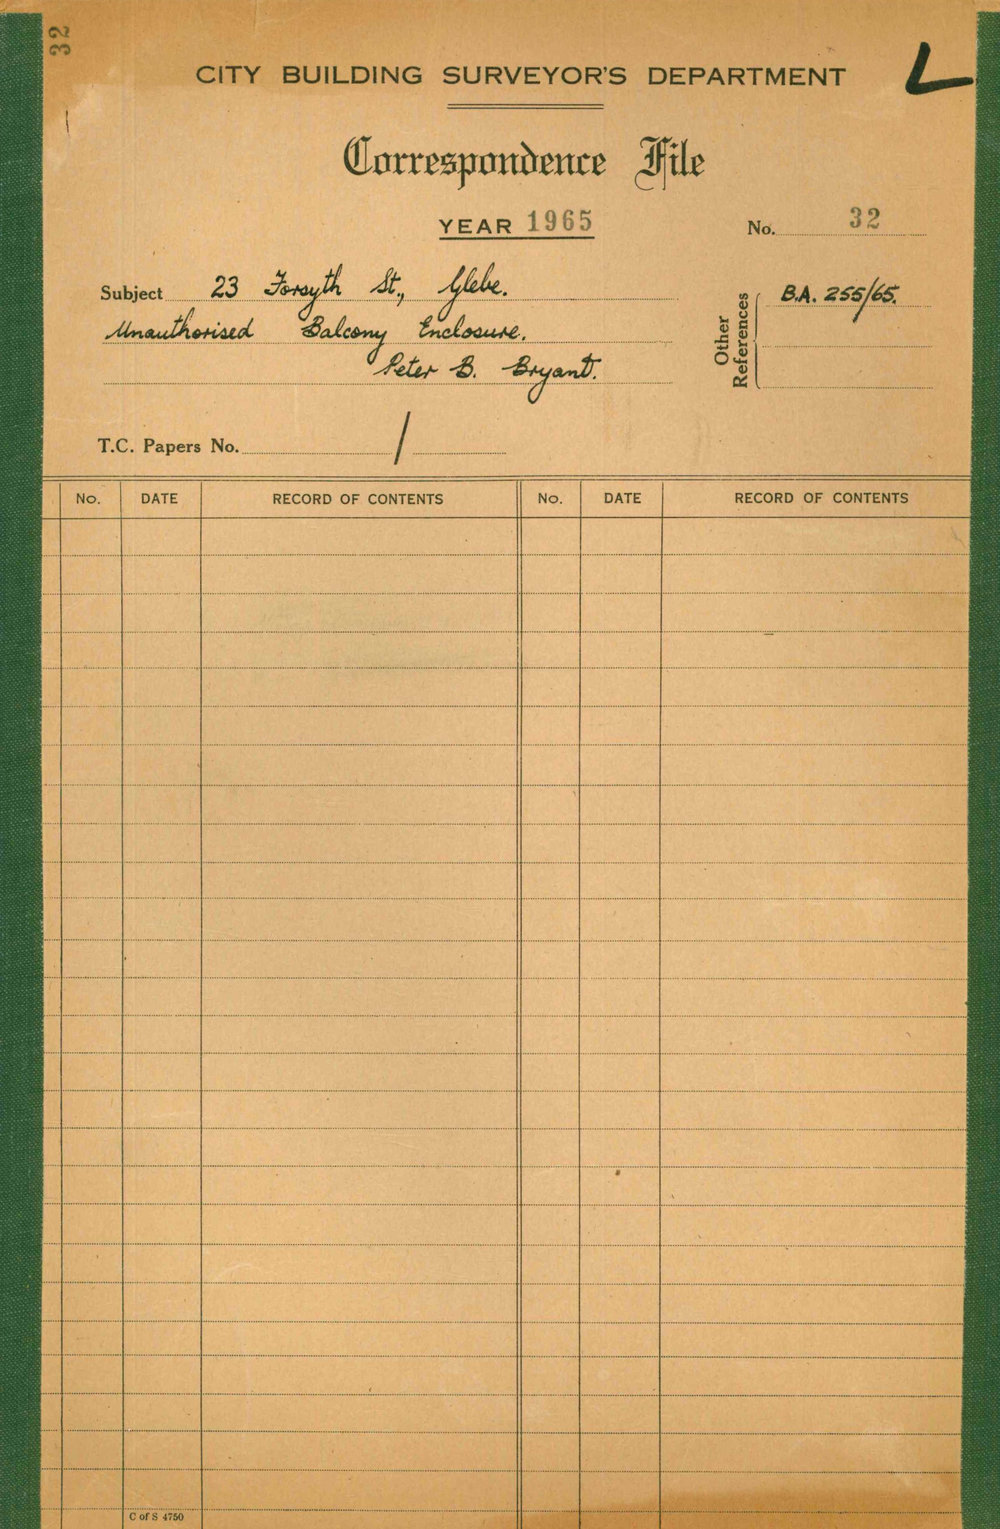 32
CITY BUILDING SURVEYOR'S DEPARTMENT
L
Correspondence File
YEAR 1965
No. 32
Subject 23 Forsyth St., Glebe.
Unauthorised Balcony Enclosure.
Peter B. Bryant.
Other References
B.A. 255/65.
T.C. Papers No. /
No. DATE RECORD OF CONTENTS No. DATE RECORD OF CONTENTS
C of S 4750